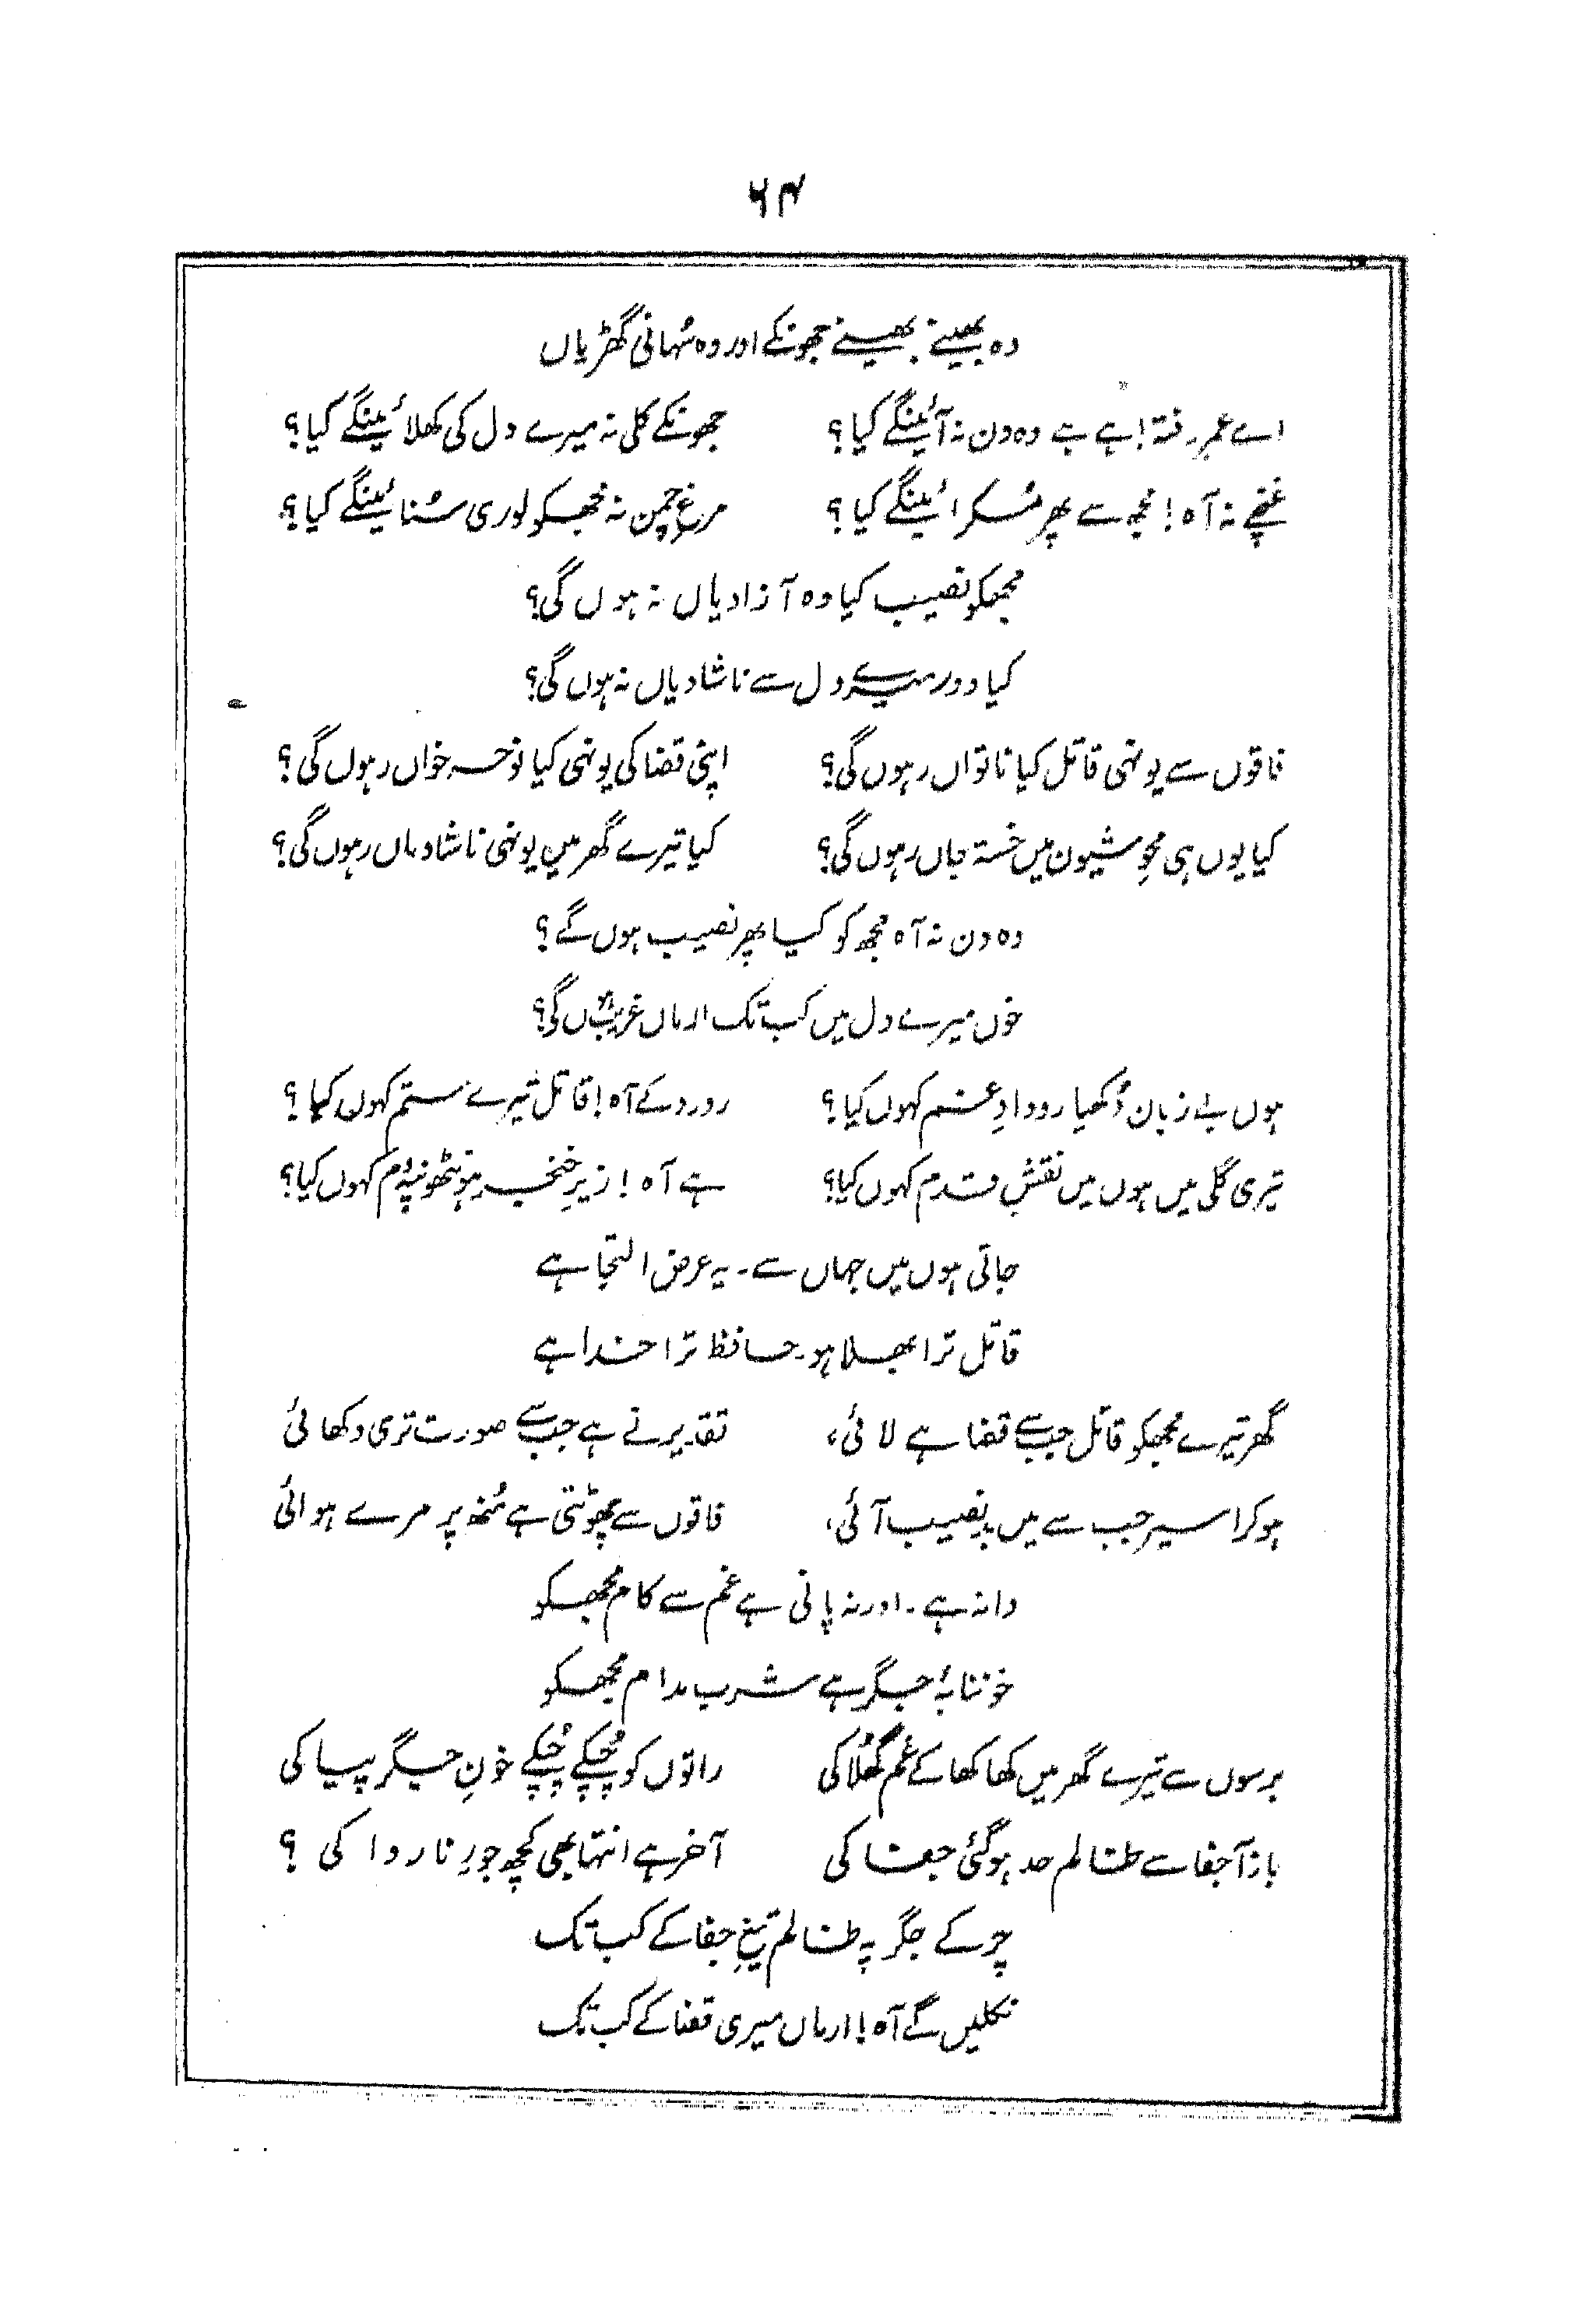 ۶۴
وہ بھینے بھینے جھونکے اور وہ سُہانی گھڑیاں
اے عمرِ رفتہ! ہے ہے وہ دن نہ آئینگے کیا؟ جھونکے کلی نہ میرے دل کی کھلائینگے کیا؟
غنچے نہ آہ! مجھ سے پھر مُسکرائینگے کیا؟ مرغِ چمن نہ مجھکو لوری سُنائینگے کیا؟
مجھکو نصیب کیا وہ آزادیاں نہ ہوں گی؟
کیا دور میرے دل سے ناشادیاں نہ ہوں گی؟
فاقوں سے یونہی قاتل کیا ناتواں رہوں گی؟ اپنی قضا کی یونہی کیا نوحہ خواں رہوں گی؟
کیا یوں ہی محوِ شیون میں خستہ جاں رہوں گی؟ کیا تیرے گھر میں یونہی ناشادماں رہوں گی؟
وہ دن نہ آہ مجھ کو کیا پھر نصیب ہوں گے؟
خوں میرے دل میں کب تک ارماں غریب ہوں گی؟
ہوں بے زبان دُکھیا رودادِ غم کہوں کیا؟ رو رو کے آہ! قاتل تیرے ستم کہوں کیا؟
تیری گلی میں ہوں میں نقشِ قدم کہوں کیا؟ ہے آہ! زیرِ خنجر ہونٹھونپہ دم کہوں کیا؟
جاتی ہوں میں جہاں سے۔ یہ عرض التجا ہے
قاتل ترا بھلا ہو۔ حافظ ترا خدا ہے
گھر تیرے مجھکو قاتل جب سے قضا ہے لائی، تقدیر نے ہے جب سے صورت تری دکھائی
ہوکر اسیر جب سے میں بدنصیب آئی، فاقوں سے چھوٹتی ہے مُنھ پر مرے ہوائی
دانہ ہے۔ اور نہ پانی ہے غم سے کام مجھکو
خوننابۂ جگر ہے شرب مدام مجھکو
برسوں سے تیرے گھر میں کھا کھا کے غم گھُلا کی راتوں کو چُپکے چُپکے خونِ جگر پیا کی
باز آ جفا سے ظالم حد ہوگئی جفا کی آخر ہے انتہا بھی کچھ جورِ ناروا کی ؟
چرکے جگر پہ ظالم تیغِ جفا کے کب تک
نکلیں گے آہ! ارماں میری قضا کے کب تک